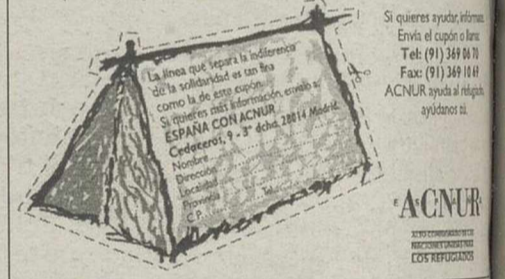 La línea que separa la indiferencia
de la solidaridad es tan fina
como la de este cupón.
Si quieres más información, envíalo a:
ESPAÑA CON ACNUR
Cedaceros, 9 - 3° dcha. 28014 Madrid.
Nombre
Dirección
Localidad
Provincia
C.P. Tel.
Si quieres ayudar, infórmate
Envía el cupón o llama
Tel: (91) 369 06 70
Fax: (91) 369 10 69
ACNUR ayuda al refugiado
ayúdanos tú.
ACNUR
ALTO COMISIONADO DE LAS
NACIONES UNIDAS PARA
LOS REFUGIADOS